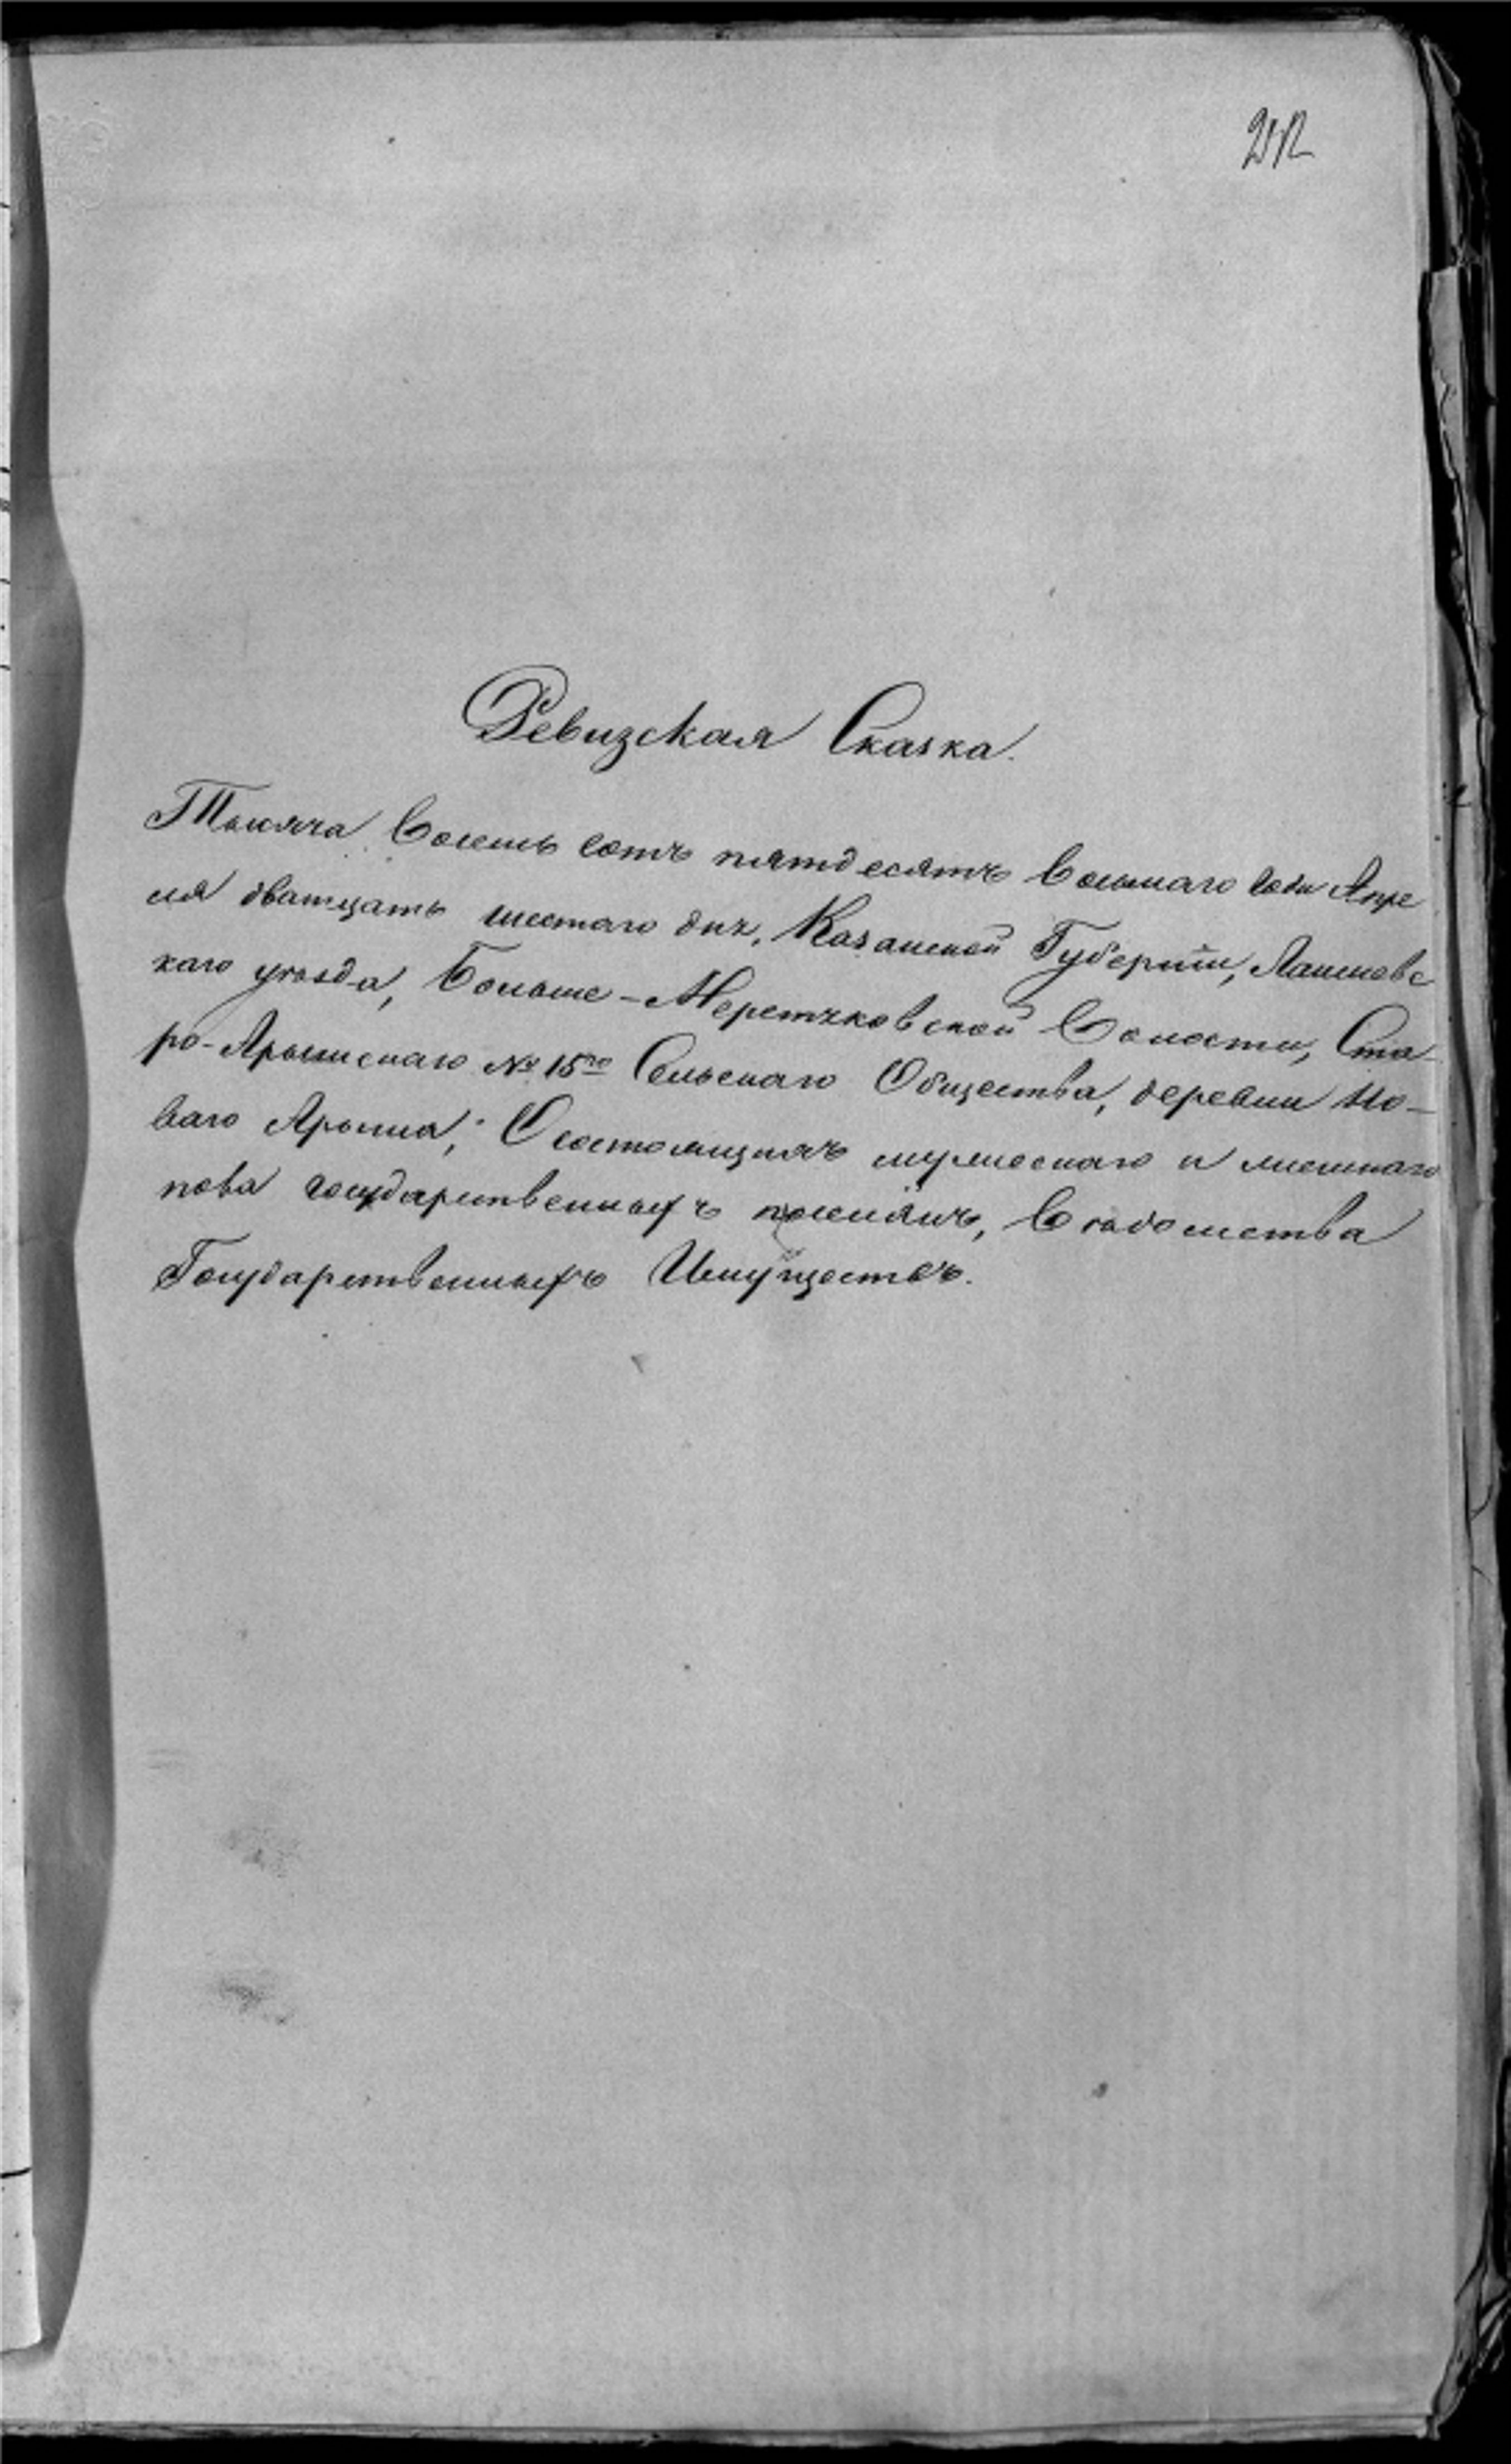 212
Ревизская Сказка.
Тысяча Восемь сотъ пятдесятъ Восьмаго года Апре
ля дватцать шестаго дня, Казанской Губерніи, Лаишевс
каго уѣзда, Больше-Меретяковской Волости, Ста-
ро-Арышскаго № 15го Сельскаго Общества, деревни Но-
ваго Арыша, О состоящихъ мужескаго и женскаго
пова государственныхъ поселянъ, Вѣдомства
Государственныхъ Имуществъ.